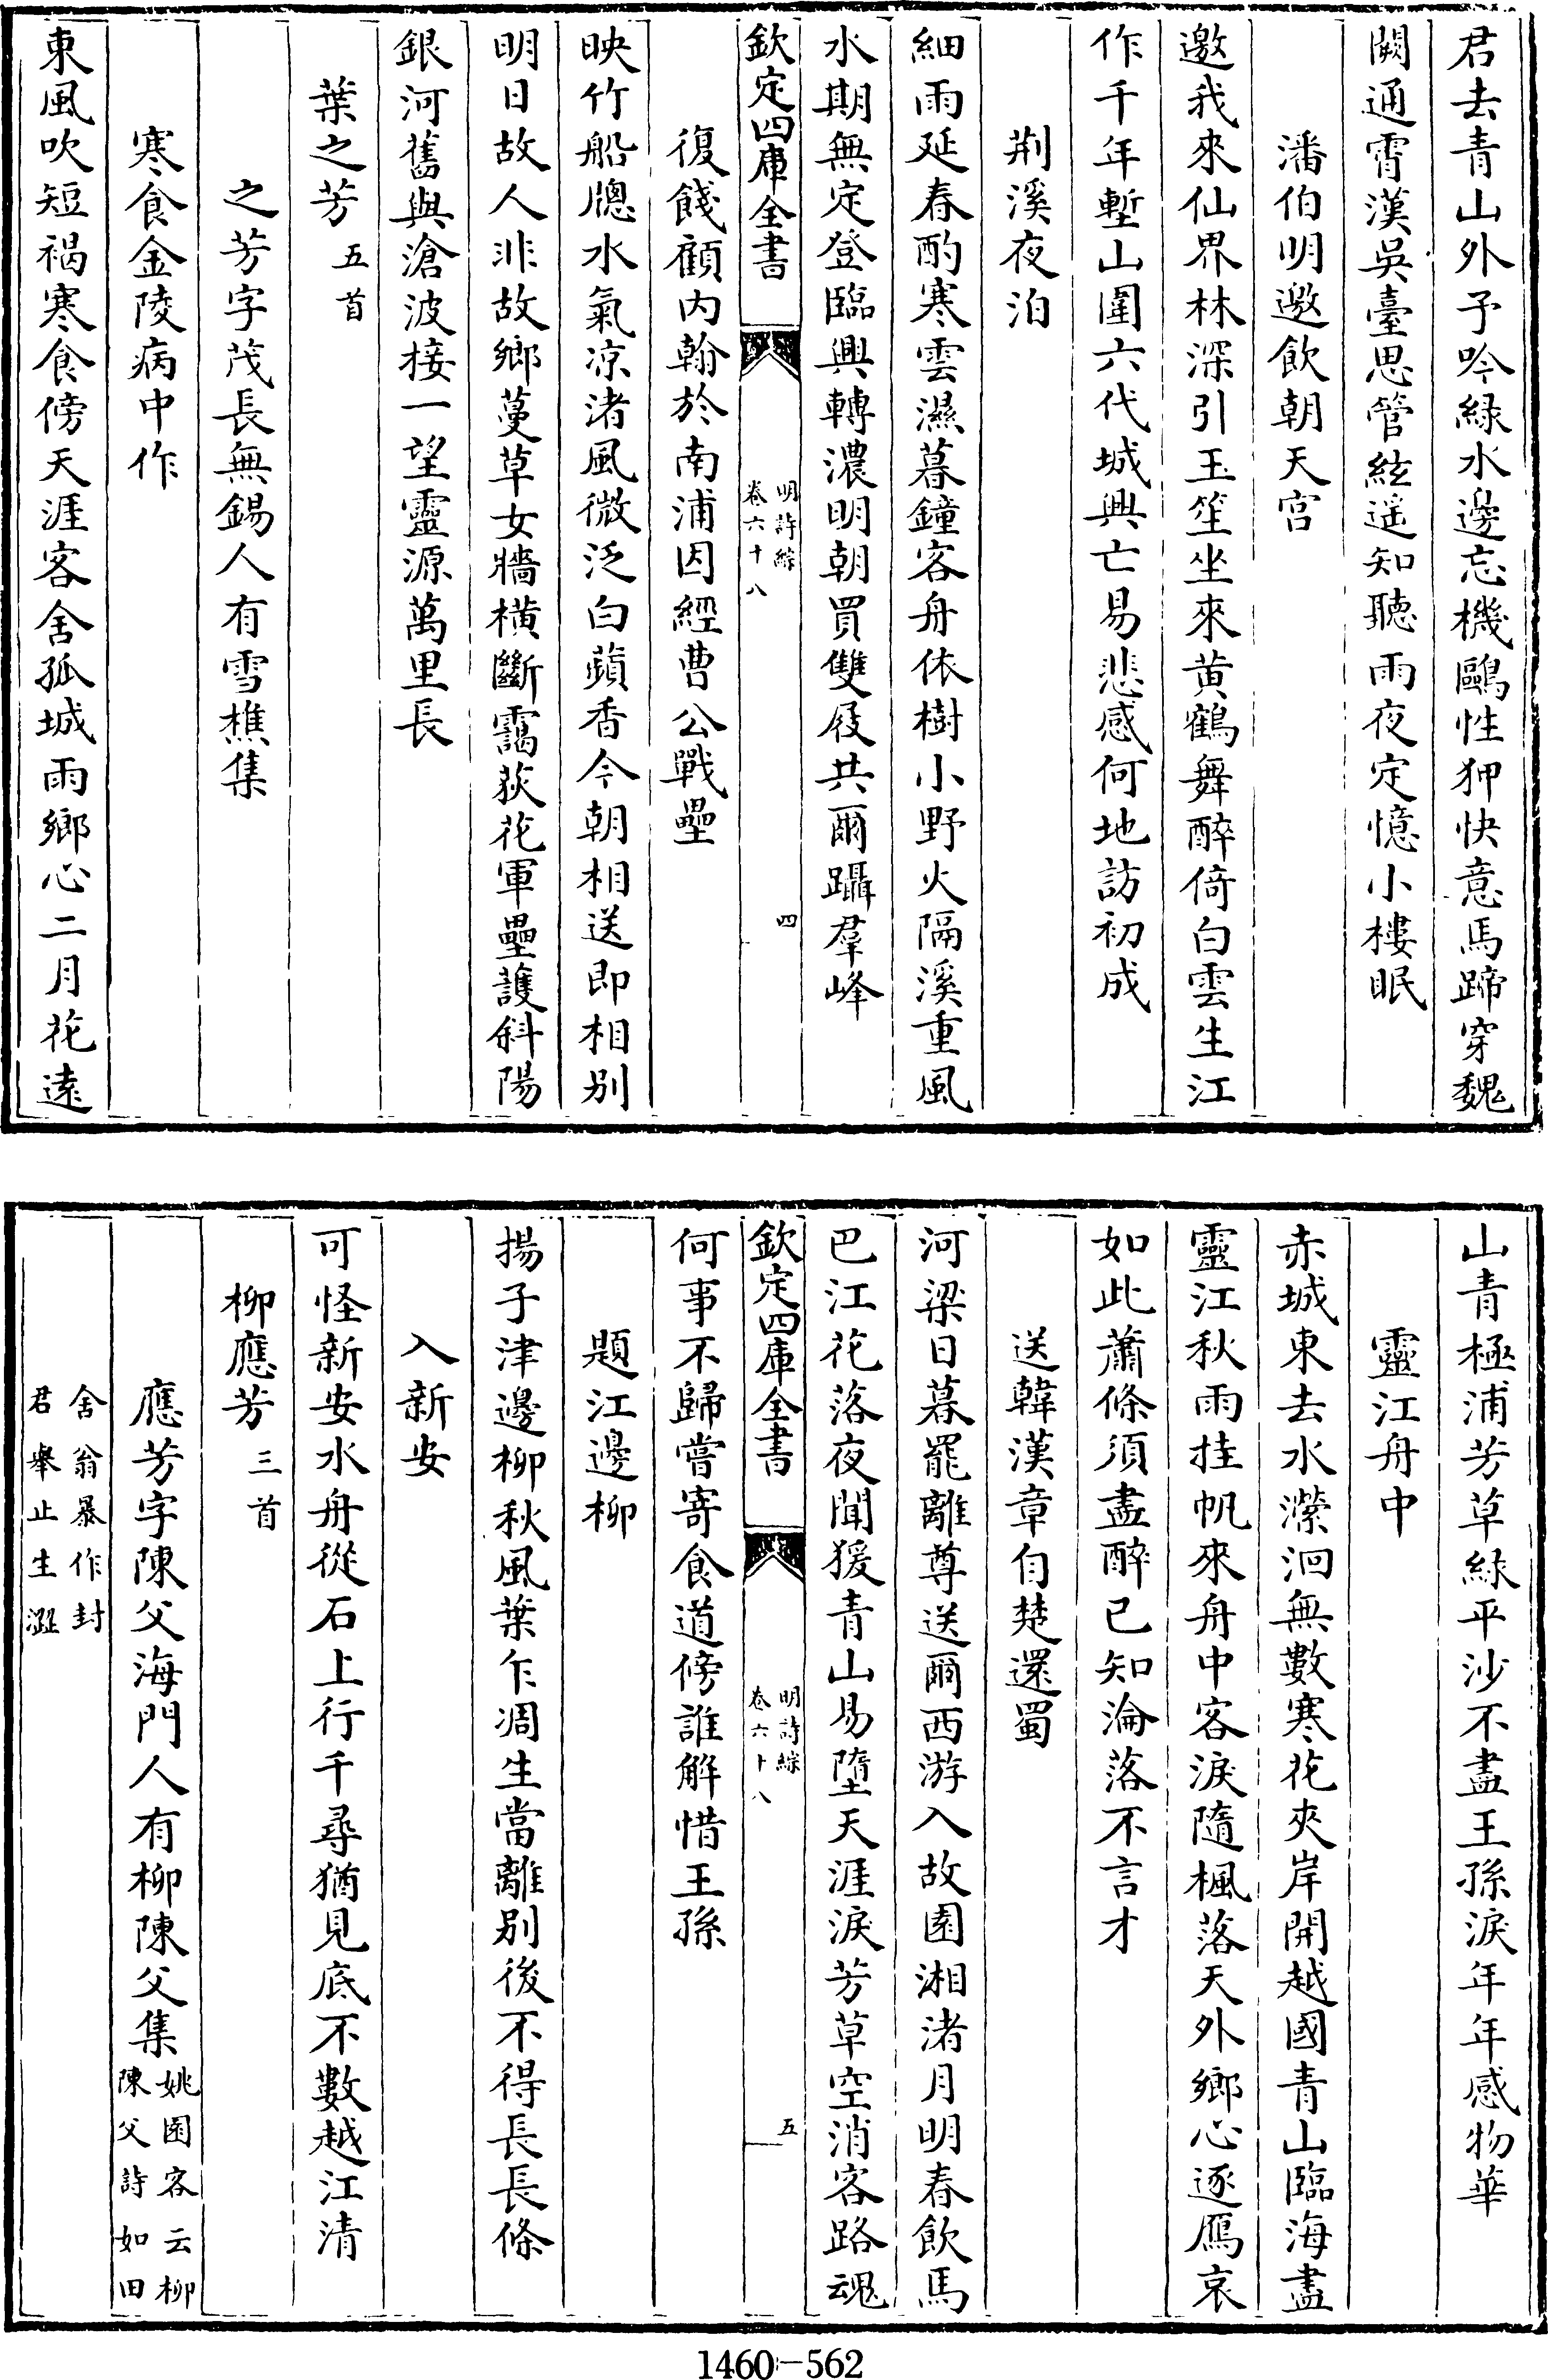 君去青山外予吟緑水邊忘機鷗性狎快意馬蹄穿魏
闕通霄漢吳臺思管絃遥知聽雨夜定憶小樓眠
潘伯明邀飲朝天宫
邀我來仙界林深引玉笙坐來黄鶴舞醉倚白雲生江
作千年塹山圍六代城興亡易悲感何地訪初成
荆溪夜泊
細雨延春酌寒雲濕暮鐘客舟依樹小野火隔溪重風
水期無定登臨興轉濃明朝買雙屐共爾躡羣峰
欽定四庫全書
明詩綜
卷六十八
四
復餞顧内翰於南浦因經曹公戰壘
映竹船牕水氣凉渚風微泛白蘋香今朝相送即相别
明日故人非故鄉蔓草女牆横斷靄荻花軍壘護斜陽
銀河舊與滄波接一望靈源萬里長
葉之芳五首
之芳字茂長無錫人有雪樵集
寒食金陵病中作
東風吹短褐寒食傍天涯客舍孤城雨鄉心二月花遠
山青極浦芳草緑平沙不盡王孫淚年年感物華
靈江舟中
赤城東去水瀠洄無數寒花夾岸開越國青山臨海盡
靈江秋雨挂帆來舟中客淚隨楓落天外鄉心逐鴈哀
如此蕭條須盡醉已知淪落不言才
送韓漢章自楚還蜀
河梁日暮罷離尊送爾西游入故園湘渚月明春飲馬
巴江花落夜聞猨青山易墮天涯淚芳草空消客路魂
欽定四庫全書
明詩綜
卷六十八
五
何事不歸嘗寄食道傍誰解惜王孫
題江邊柳
揚子津邊柳秋風葉乍凋生當離别後不得長長條
入新安
可怪新安水舟從石上行千尋猶見底不數越江清
柳應芳三首
應芳字陳父海門人有柳陳父集姚園客云柳
陳父詩如田
舍翁暴作封
君舉止生澀
1460-562